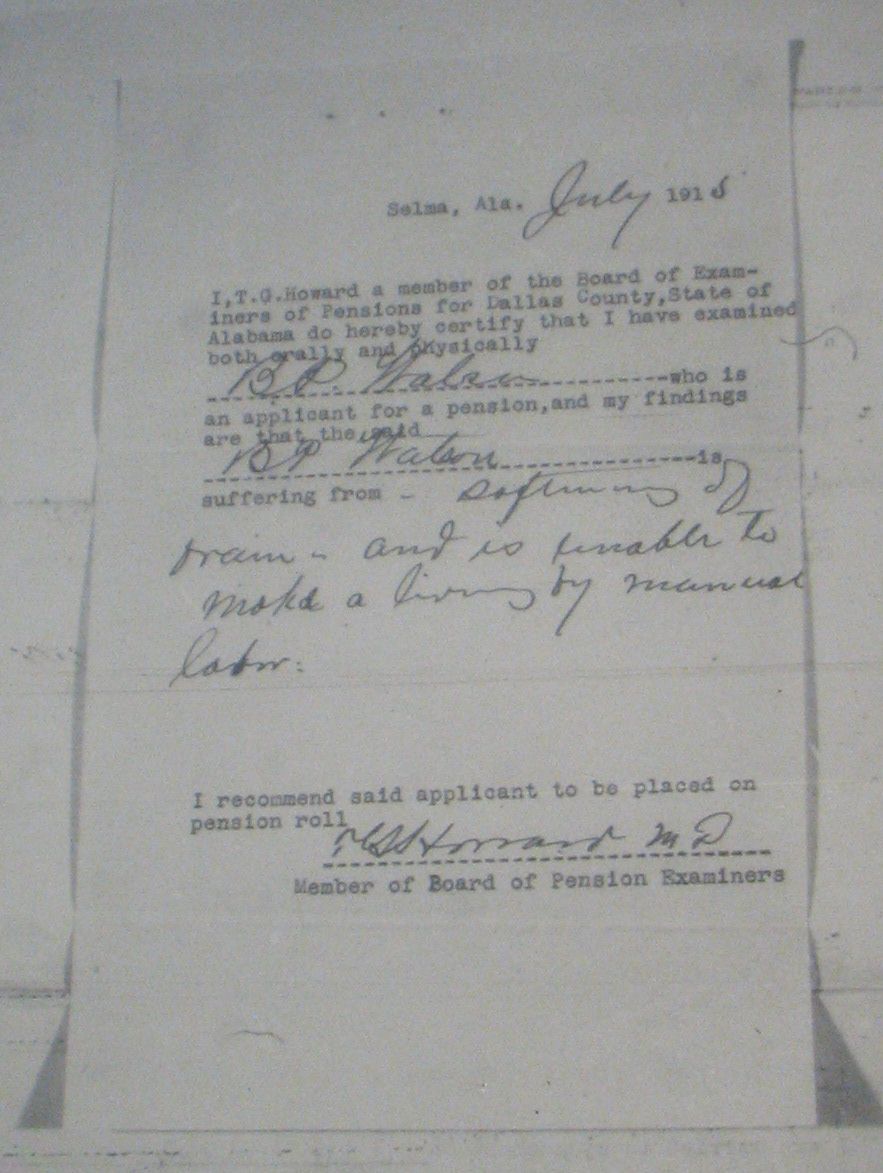 Selma, Ala. July 1915
I,T.G.Howard a member of the Board of Exam-
iners of Pensions for Dallas County,State of
Alabama do hereby certify that I have examined
both orally and physically
B.P. Watson who is
an applicant for a pension,and my findings
are that the said
BP Watson is
suffering from - softening of
brain - and is unable to
make a living by manual
labor.
I recommend said applicant to be placed on
pension roll
TG Howard M D
Member of Board of Pension Examiners